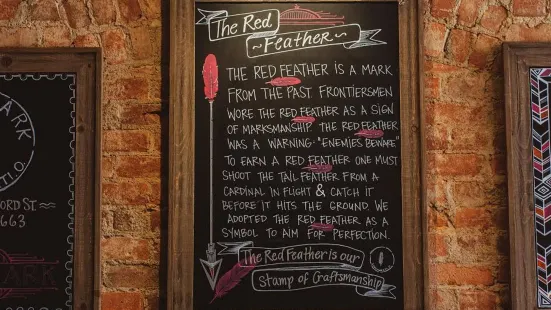 The Red
Feather
THE RED FEATHER IS A MARK
FROM THE PAST. FRONTIERSMEN
WORE THE RED FEATHER AS A SIGN
OF MARKSMANSHIP. THE RED FEATHER
WAS A WARNING: "ENEMIES BEWARE"
TO EARN A RED FEATHER ONE MUST
SHOOT THE TAIL FEATHER FROM A
CARDINAL IN FLIGHT & CATCH IT
BEFORE IT HITS THE GROUND. WE
ADOPTED THE RED FEATHER AS A
SYMBOL TO AIM FOR PERFECTION.
The Red Feather is our
Stamp of Craftsmanship
ARK
TIO.
ORD ST
663
ARK